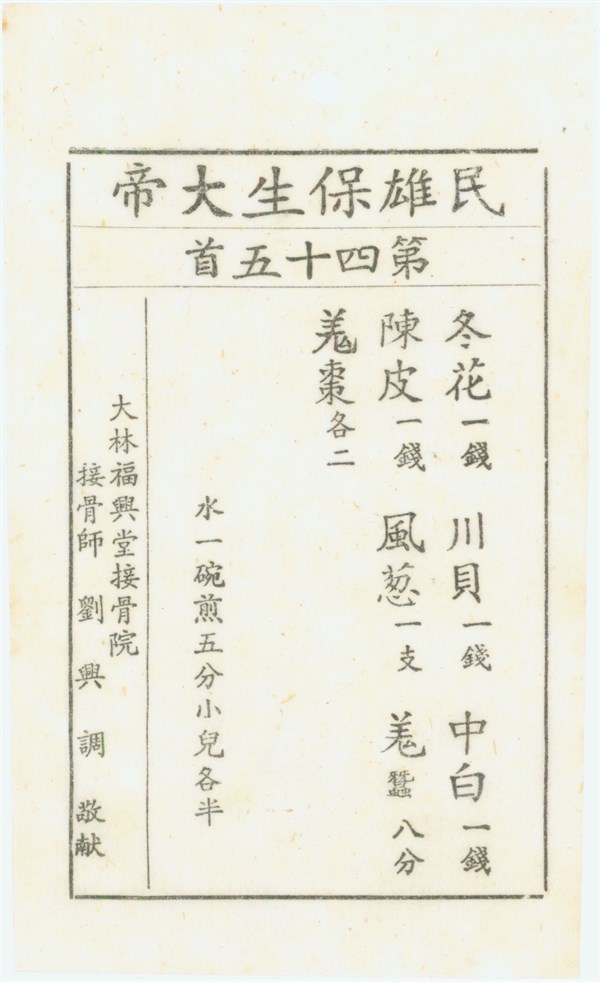 民雄保生大帝
第四十五首
冬花一錢 川貝一錢 中白一錢
陳皮一錢 風葱一支 羗蠶八分
羗棗各二
水一碗煎五分小兒各半
大林福興堂接骨院
接骨師 劉興調 敬献